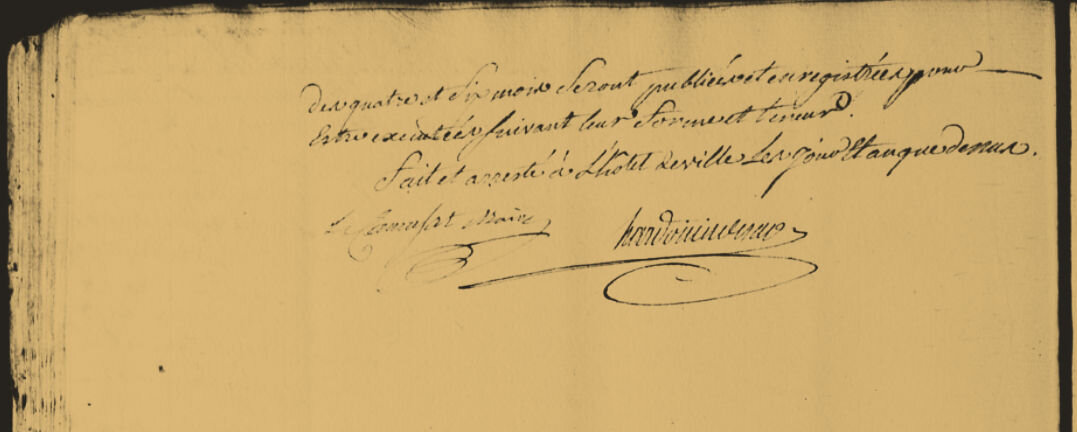 des quatre et six mois seront publiées et enregistrées pour
Estre executées suivant leur forme et teneur.
fait et arresté à l'hotel de ville Les jour Et an que dessus.
Maire